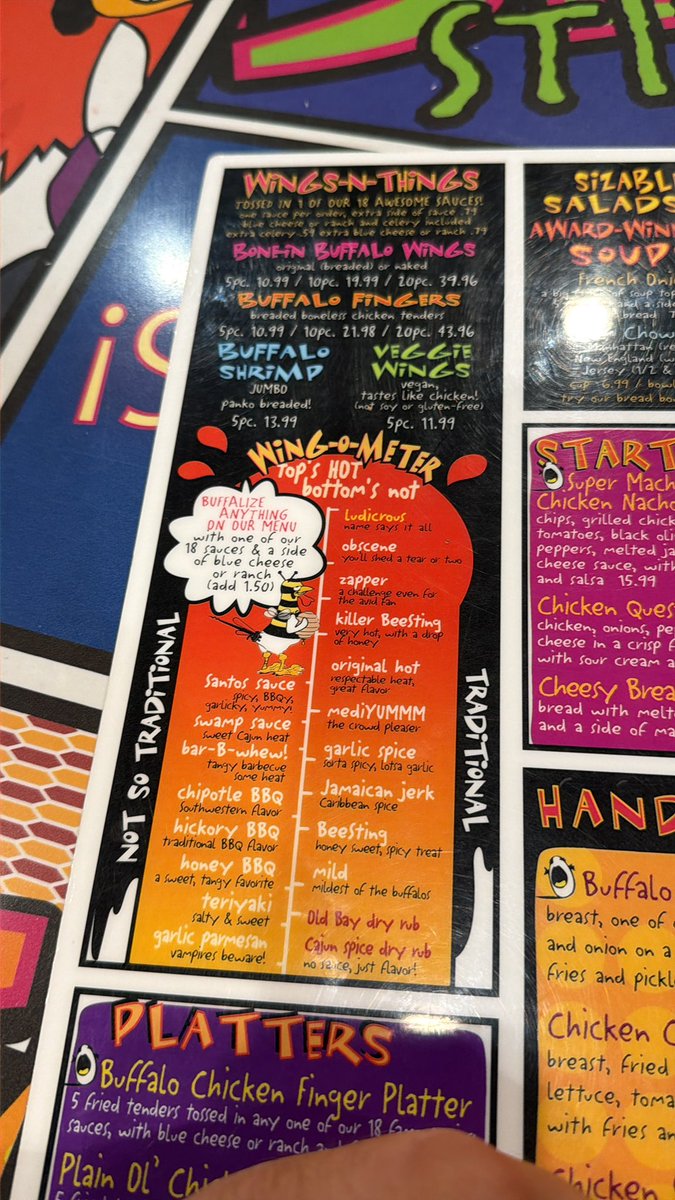 STI
¡S
WiNGS-N-THiNGS
TOSSED IN 1 OF OUR 18 AWESOME SAUCES!
one sauce per order, extra side of sauce .79
blue cheese or ranch and celery included
extra celery .59 extra blue cheese or ranch .79
BONE-IN BUFFALO WINGS
original (breaded) or naked
5pc. 10.99 / 10pc. 19.99 / 20pc. 39.96
BUFFALO FINGERS
breaded boneless chicken tenders
5pc. 10.99 / 10pc. 21.98 / 20pc. 43.96
BUFFALO
SHRIMP
JUMBO
panko breaded!
5pc. 13.99
VEGGIE
WINGS
vegan,
tastes like chicken!
(not soy or gluten-free)
5pc. 11.99
WiNG-O-METER
Top's HOT
bottom's not
BUFFALIZE
ANYTHING
ON OUR MENU
with one of our
18 sauces & a side
of blue cheese
or ranch
(add 1.50)
NOT SO TRADITIONAL
santos sauce
spicy, BBQy,
garlicky, yummy!
swamp sauce
sweet Cajun heat
bar-B-whew!
tangy barbecue
some heat
chipotle BBQ
Southwestern flavor
hickory BBQ
traditional BBQ flavor
honey BBQ
a sweet, tangy favorite
teriyaki
salty & sweet
garlic parmesan
vampires beware!
ludicrous
name says it all
obscene
you'll shed a tear or two
zapper
a challenge even for
the avid fan
killer BeeSting
very hot, with a drop
of honey
original hot
respectable heat,
great flavor
mediYUMMM
the crowd pleaser
garlic spice
sorta spicy, lotsa garlic
Jamaican jerk
Caribbean spice
BeeSting
honey sweet, spicy treat
mild
mildest of the buffalos
Old Bay dry rub
Cajun spice dry rub
no sauce, just flavor!
TRADITIONAL
PLATTERS
Buffalo Chicken Finger Platter
5 fried tenders tossed in any one of our 18
sauces, with blue cheese or ranch and
Plain Ol' Chi
5 fried
SIZABL
SALADS
AWARD-WIN
SOUP
French Oni
a big of soup top
and a side
bread
Chow
Manhattan (re
New England (w
Jersey (1/2 &
cup 6.99 / bowl
try our bread bow
START
Super Mach
Chicken Nacho
chips, grilled chick
tomatoes, black oli
peppers, melted ja
cheese sauce, with
and salsa 15.99
Chicken Ques
chicken, onions, pe
cheese in a crisp f
with sour cream a
Cheesy Brea
bread with melt
and a side of ma
HAND
Buffalo
breast, one of
and onion on a
fries and pickl
Chicken C
breast, fried
lettuce, toma
with fries an
Chicken